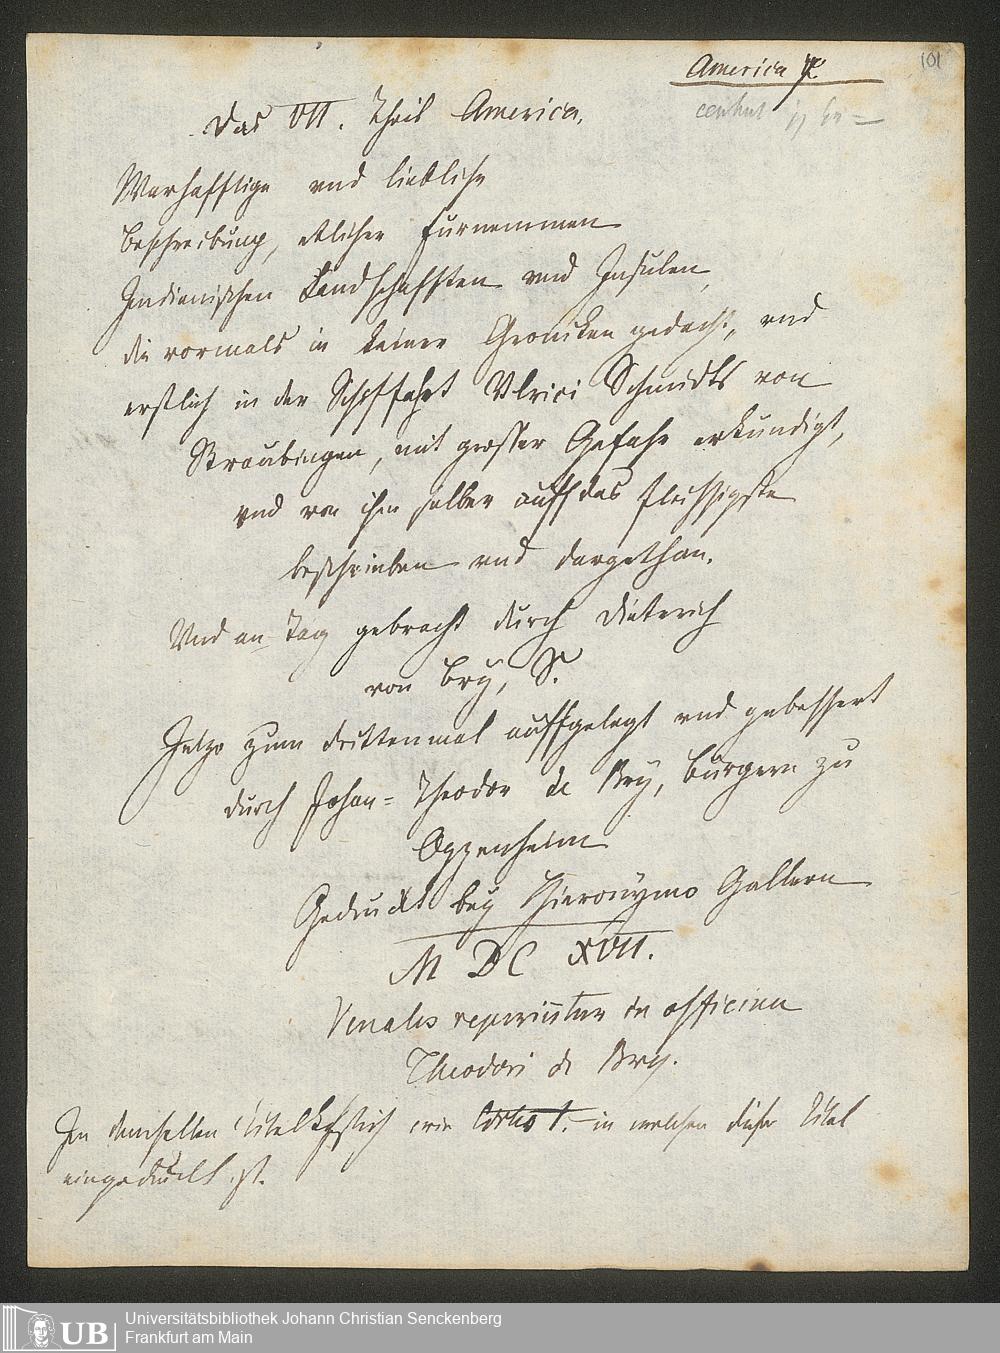 America
101
Das VII. Theil America.
Warhafftige vnd liebliche
Beschreibung, etlicher furnemmen
Indianischen Landschafften vnd Insulen,
die vormals in keiner Cronicken gedacht, vnd
erstlich in der Schiffahrt Vlrici Schmidts von
Straubingen, mit grosser Gefahr erkundigt,
vnd von ihm selber auff das fleissigste
beschrieben vnd dargethan.
Vnd an Tag gebracht durch Dieterich
von Bry, S.
Jetzo zum drittenmal auffgelegt vnd gebessert
durch Johan= Theodor de Bry, Burgern zu
Oppenheim
Gedruckt bey Hieronymo Gallern
M DC XVII.
Venales reperiūtur in officina
Theodori de Bry.
In demselben Titelkpfstich wie Editio 1. in welchen dieser Titel
eingedruckt ist.
UB Universitätsbibliothek Johann Christian Senckenberg
Frankfurt am Main